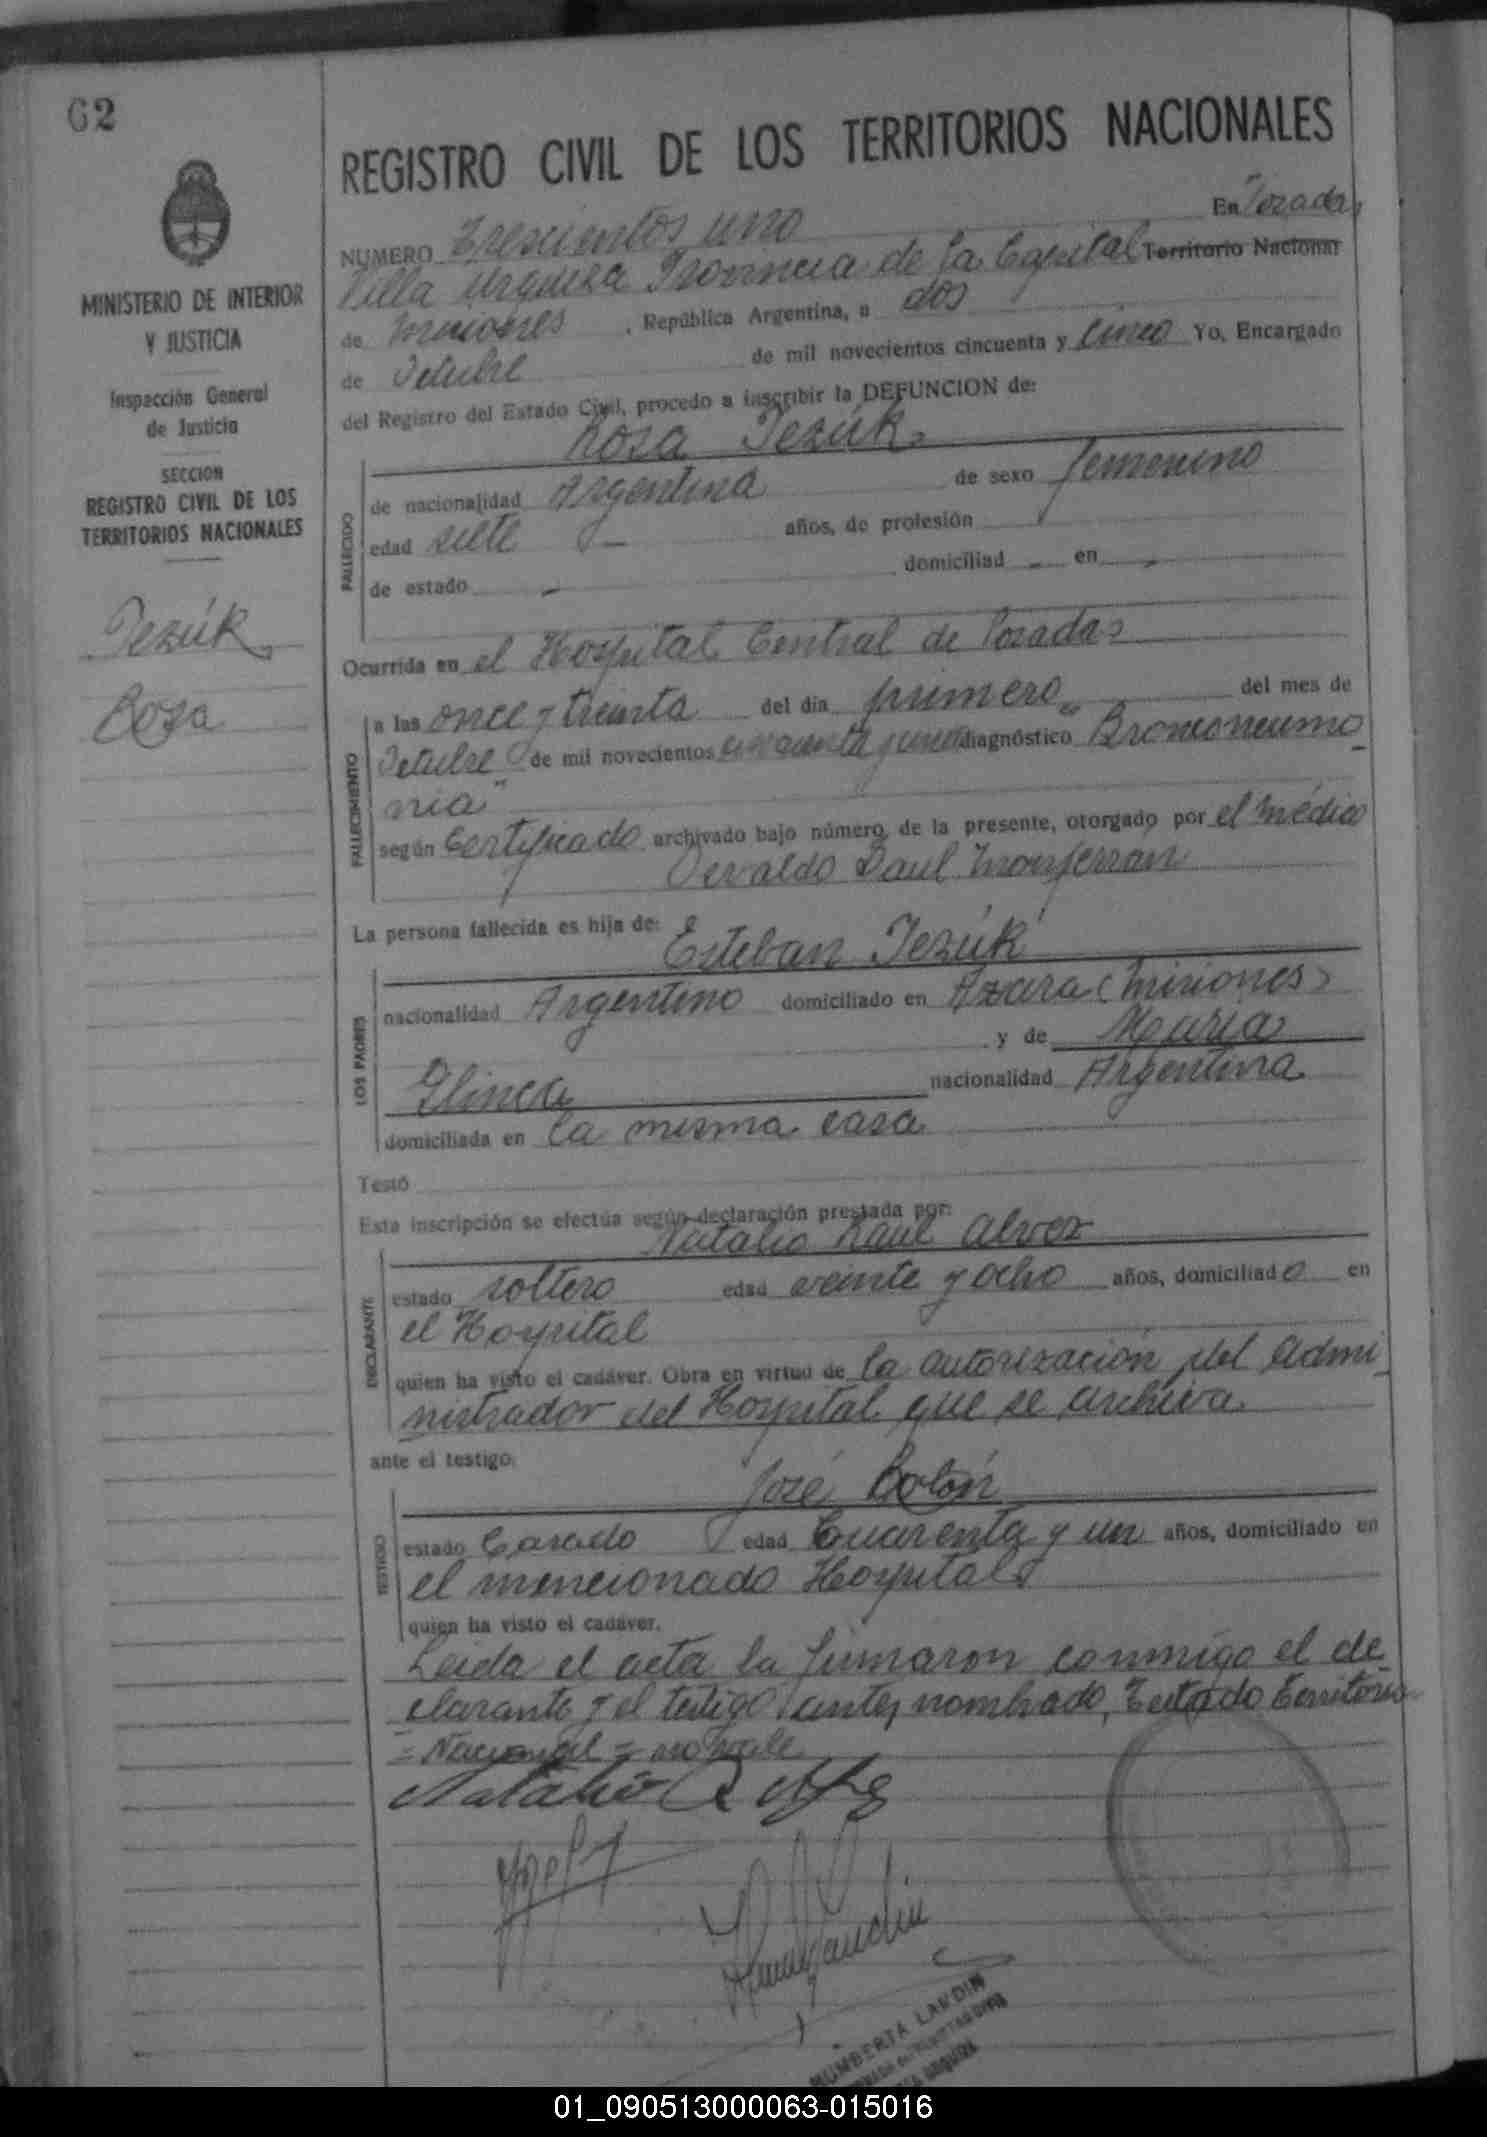 62
MINISTERIO DE INTERIOR
Y JUSTICIA
Inspección General
de Justicia
SECCION
REGISTRO CIVIL DE LOS
TERRITORIOS NACIONALES
Tezúk
Rosa
REGISTRO CIVIL DE LOS TERRITORIOS NACIONALES
NUMERO Trescientos uno En Posadas
Villa Urquiza Provincia de la Capital Territorio Nacional
de Misiones, República Argentina, a dos
de Octubre de mil novecientos cincuenta y cinco Yo, Encargado
del Registro del Estado Civil, procedo a inscribir la DEFUNCION de:
Rosa Tezúk
FALLECIDO
de nacionalidad Argentina de sexo femenino
edad siete - años, de profesión
de estado - domiciliad - en -
Ocurrida en el Hospital Central de Posadas
FALLECIMIENTO
a las once y treinta del día primero del mes de
Octubre de mil novecientos cincuenta y cinco diagnóstico Bronconeumo
nia"
según Certificado archivado bajo número de la presente, otorgado por el médico
Osvaldo Raul Monferran
La persona fallecida es hija de:
Esteban Tezúk
LOS PADRES
nacionalidad Argentino domiciliado en Azara (Misiones)
y de María
Glinca nacionalidad Argentina
domiciliada en la misma casa
Testó
Esta inscripción se efectúa según declaración prestada por:
Natalio Raul Alvez
DECLARANTE
estado soltero edad veinte y ocho años, domiciliado en
el Hospital
quien ha visto el cadáver. Obra en virtud de la autorización del Admi
nistrador del Hospital que se archiva.
ante el testigo:
José Botón
TESTIGO
estado Casado edad Cuarenta y un años, domiciliado en
el mencionado Hospital
quien ha visto el cadáver.
Leida el acta la firmaron conmigo el de
clarante y el testigo antes nombrado, Testado Territorio
= Nacional = no vale
Natalio R
HUMBERTA LANDIN
01_090513000063-015016